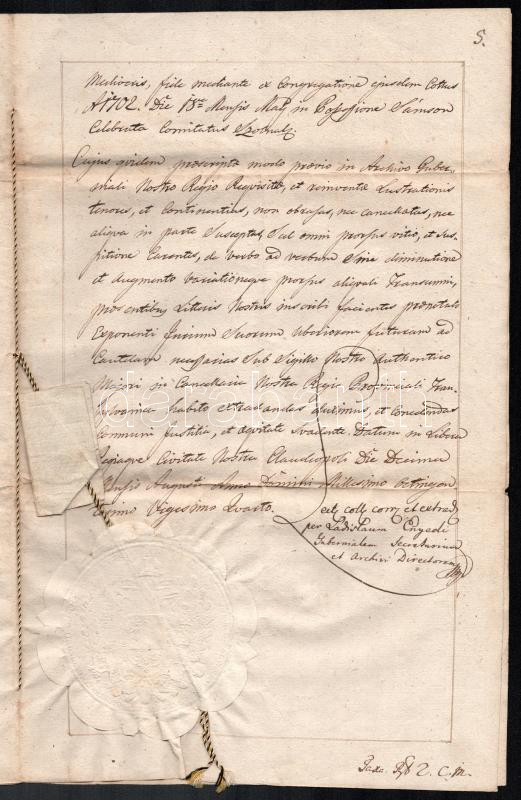 5.
Mediocris, fide mediante ex Congregatione ejusdem Cottus
Ao 1702. Die 18va Mensis Maji in Possessione Sámson
Celebrata Comitatus Szolnok;
Cujus quidem praescripta modo praevio in Archivo Guber-
niali Nostro Regio Requisitae, et reinventae Lustrationis
tenores, et Continentias, non abrasas, nec cancellatas, nec
aliqua in parte Suspectas, Sed omni prorsus vitio, et Sus-
pitione Carentes, de verbo ad verbum Sine diminutione
et augmento variationeque prorsus aliquali Transumi,
praesentibus Literis Nostris inscribi facientes praenotato
Exponenti Jurium Suorum Uberiorem futuram ad
Cautelam necessarias Sub Sigillo Nostro Authentico
Majori in Cancellaria Nostra Regia Provinciali Tran-
sylvanica habito extradandas duximus, et concedendas
Communi Justitia, et aequitate Svadente. Datum in Libera
Regiaque Civitate Nostra Claudiopoli Die Decima
Mensis Augusti Anno Domini Millesimo Octingen-
tesimo Vigesimo Quarto.
coll, corr, et extrad,
per Ladislaum Enyedi
Gubernialem Secretarium
et Archivi Directorem
2. c. m.
darabanth